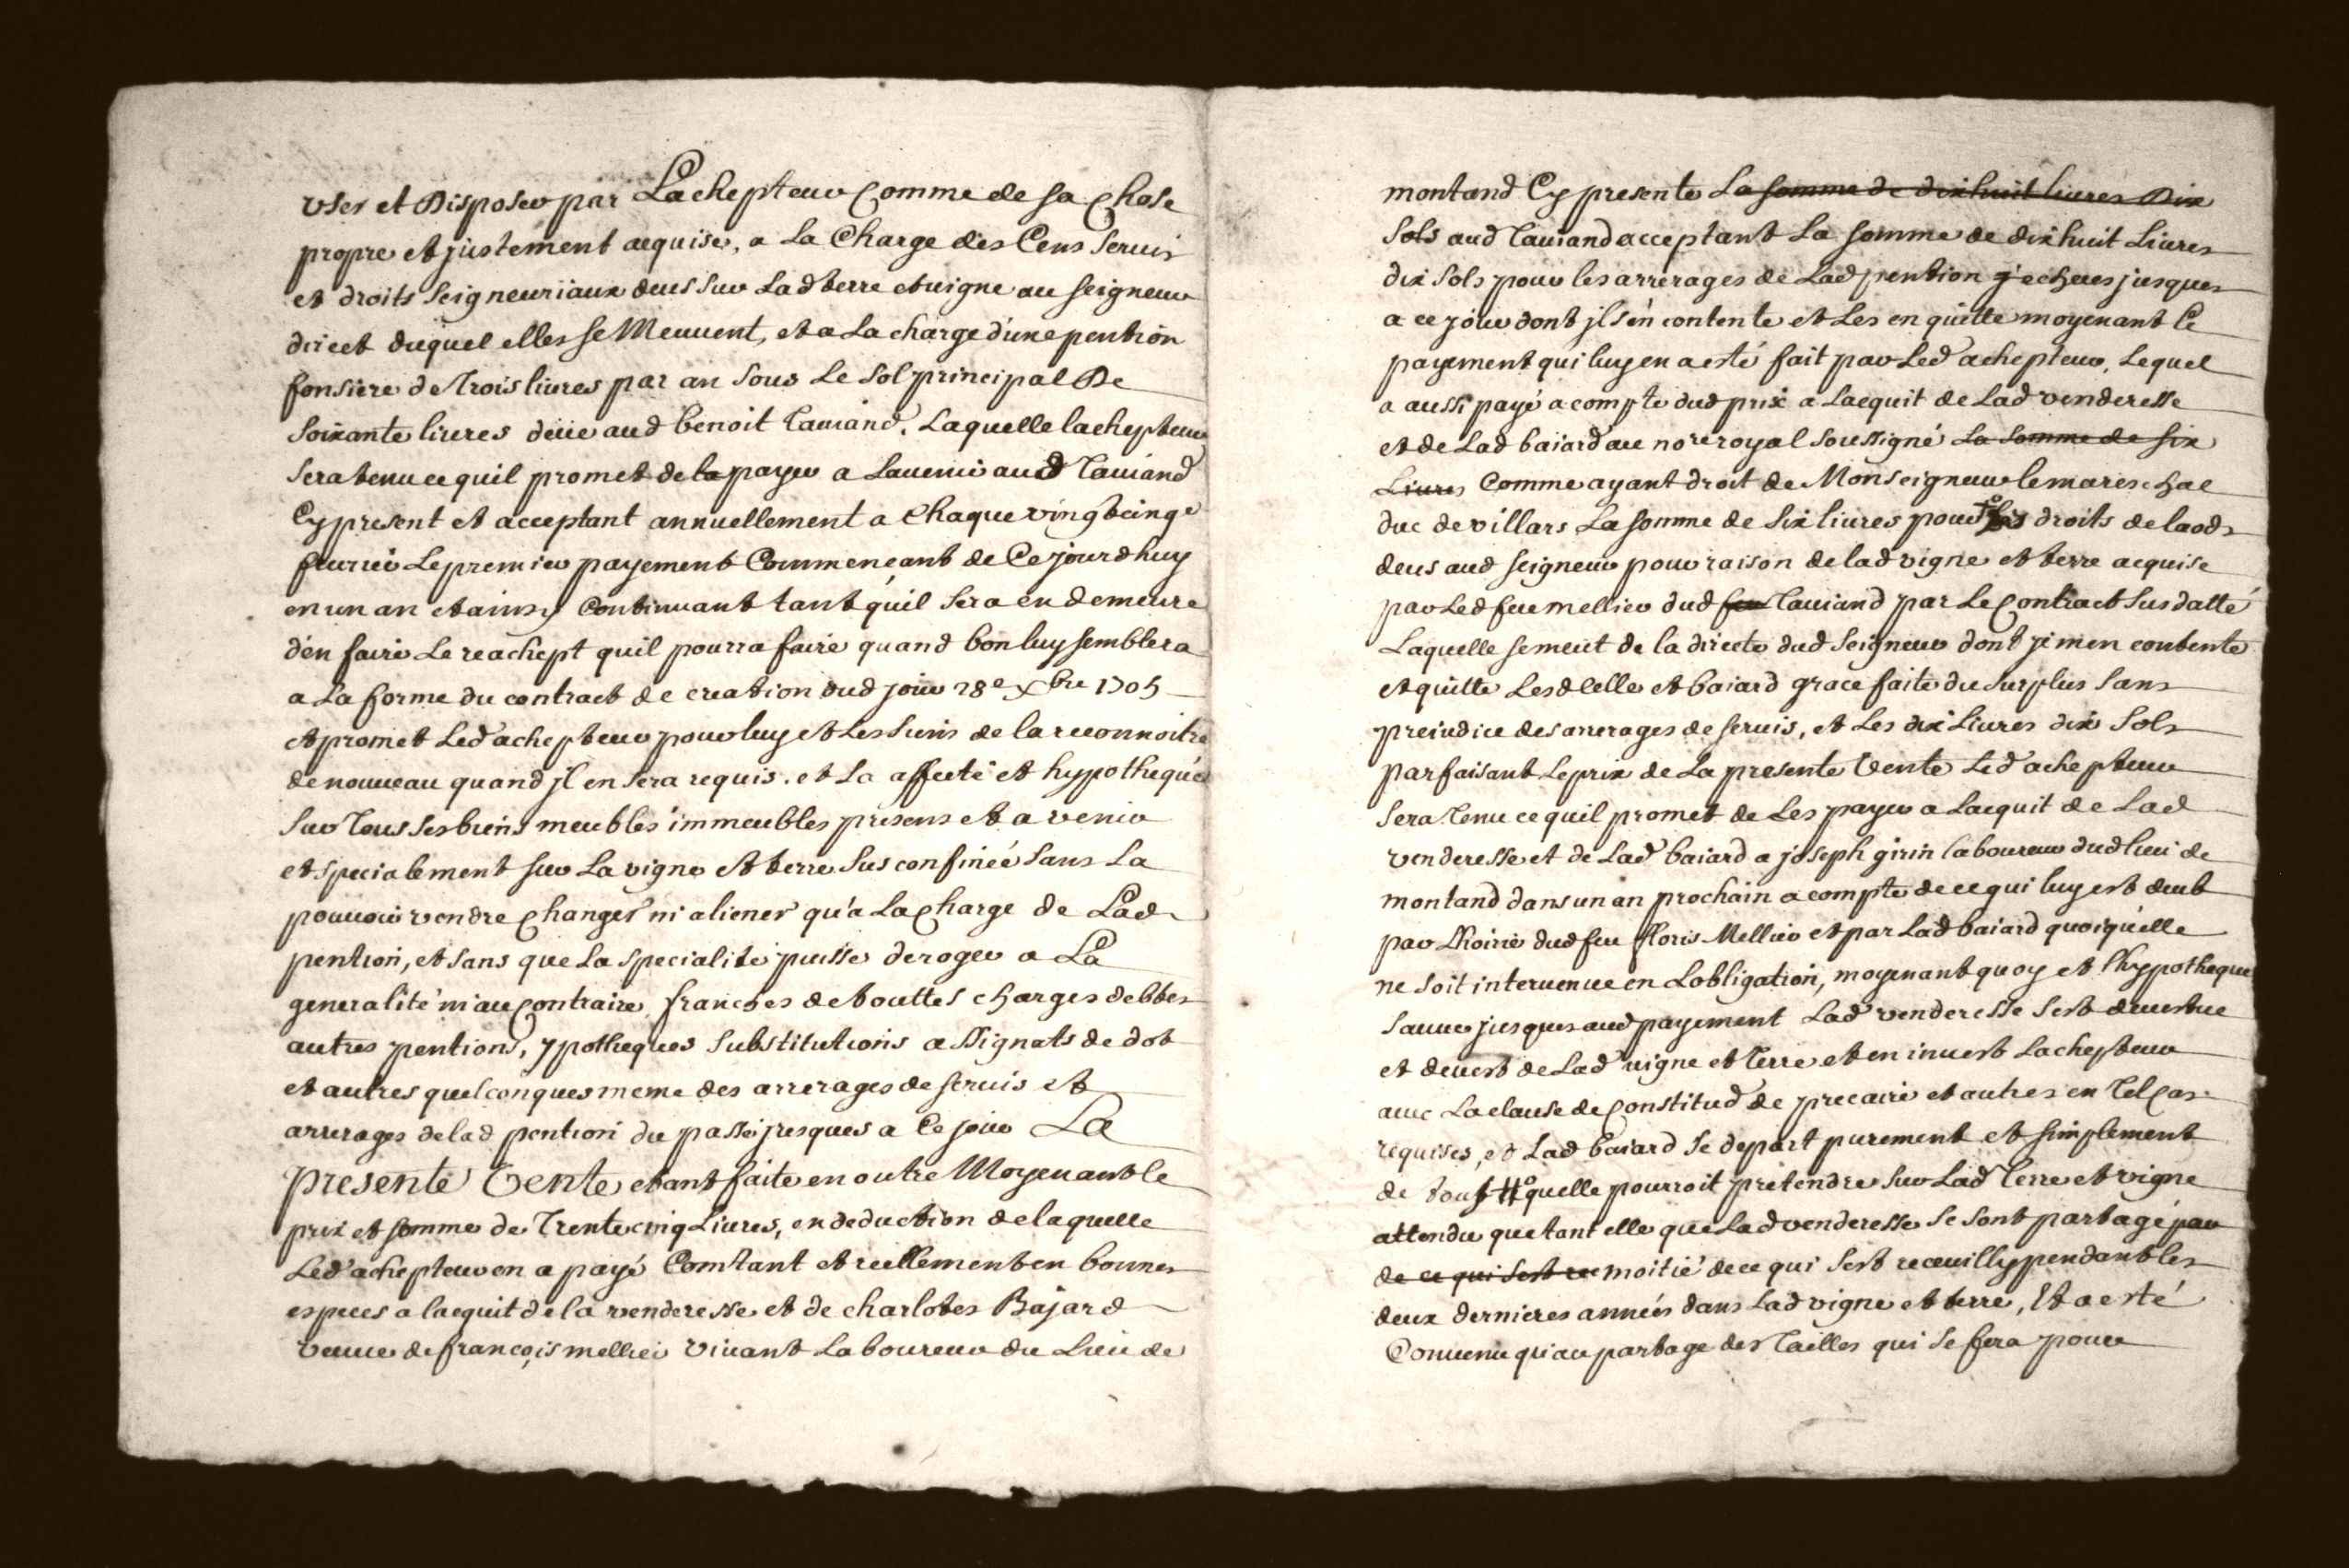 user et Disposer par Lachepteur Comme de sa Chose
propre et justement acquise, a La Charge des Cens Servis
et droits Seigneuriaux deus sur Lad terre et vigne au seigneur
direct duquel elles se Meuvent, et a La charge d'une pention
fonsiere de Trois livres par an sous Le Sol principal De
Soixante livres deüe aud benoit Taviand. Laquelle lachepteur
Sera tenu ce quil promet de la payer a Lavenir aud Taviand
Cy present et acceptant annuellement a Chaque vingt cinqe
fevrier Le premier payement Commencant de Ce jourdhuy
en un an et ainsy Continuant tant qu'il Sera en demeure
d'en faire Le reachept quil pourra faire quand bon luy semblera
a La forme du contract de creation dud jour 28e xbre 1705
et promet Led achepteur pour luy et Les Siens de la reconnoitre
de nouveau quand jl en sera requis. et La affecté et hypothequée
Sur Tous Ses biens meubles immeubles presens et a venir
et specialement sur La vigne et terre Sus confinée Sans La
pouvoir vendre Changer ni aliener qu'a La Charge de Lad
pention, et sans que La specialité puisse deroger a La
generalité ni au Contraire franches de touttes charges debtes
autres pentions, ypotheques Substitutions assignats de dot
et autres quelconques meme des arrerages de servis et
arrerages de lad pention du passé jusques a Ce jour La
presente Vente etant faite en outre Moyenant le
prix et somme de Trente cinq Livres, en deduction de laquelle
Led achepteur en a payé Comtant et reellement en bonnes
especes a lacquit de la venderesse et de charlotes Bajard
veuve de francois mellier vivant Laboureur du Lieu de
montand Cy presente La somme de dix huit livres Dix
Sols aud Taviand acceptant La somme de dix huit Livres
dix Sols pour les arrerages de Lad pention echeues jusques
a ce jour dont jl s'en contente et Les en quitte moyenant Le
payement qui luy en a esté fait par Led achepteur, Lequel
a aussi payé a compte dud prix a Lacquit de Lad venderesse
et de Lad baiard au nore royal soussigné La Somme de six
Livres Comme ayant droit de Monseigneur le mareschal
duc de villars La somme de Six livres pour droits de laods
deus aud seigneur pour raison de lad vigne et terre acquise
par Led feu mellier dud feu Taviand par Le Contract Susdatté
Laquelle se meut de la directe dud Seigneur dont je men contente
et quitte Lesd Celle et baiard grace faite du Surplus Sans
prejudice des arrerages de servis, et Les dix Livres dix Sols
parfaisant Le prix de La presente Vente Led achepteur
Sera Tenu ce quil promet de Les payer a Lacquit de Lad
venderesse et de Lad baiard a joseph girin laboureur dud lieu de
montand dans un an prochain a compte de ce qui luy est deubt
par Lhoirie dud feu floris Mellier et par Lad baiard quoiqu'elle
ne soit intervenue en Lobligation, moyenant quoy et l'hypotheque
Sauve jusques aud payement Lad venderesse Sest devestue
et devest de Lad vigne et Terre et en invest Lachepteur
avec La clause de Constitud de precaire et autres en Tel Cas
requises, et Lad baiard se depart purement et simplement
de tout quelle pourroit pretendre Sur Lad Terre et vigne
attendu que tant elle que Lad venderesse Se Sont partagé par
de ce qui Sest re moitié de ce qui Sest receuilly pendant les
deux dernieres années dans Lad vigne et terre, Et a esté
Convenu qu'au partage des Tailles qui Se fera pour